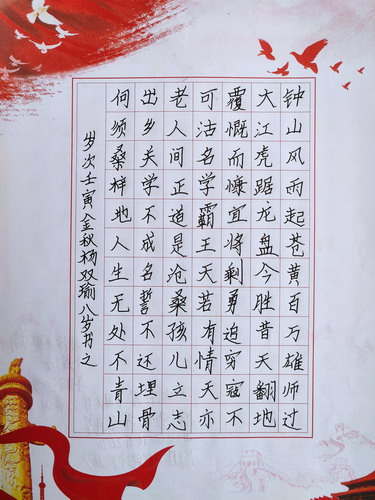 钟山风雨起苍黄百万雄师过
大江虎踞龙盘今胜昔天翻地
覆慨而慷宜将剩勇追穷寇不
可沽名学霸王天若有情天亦
老人间正道是沧桑孩儿立志
出乡关学不成名誓不还埋骨
何须桑梓地人生无处不青山
岁次壬寅金秋杨双瑜八岁书之